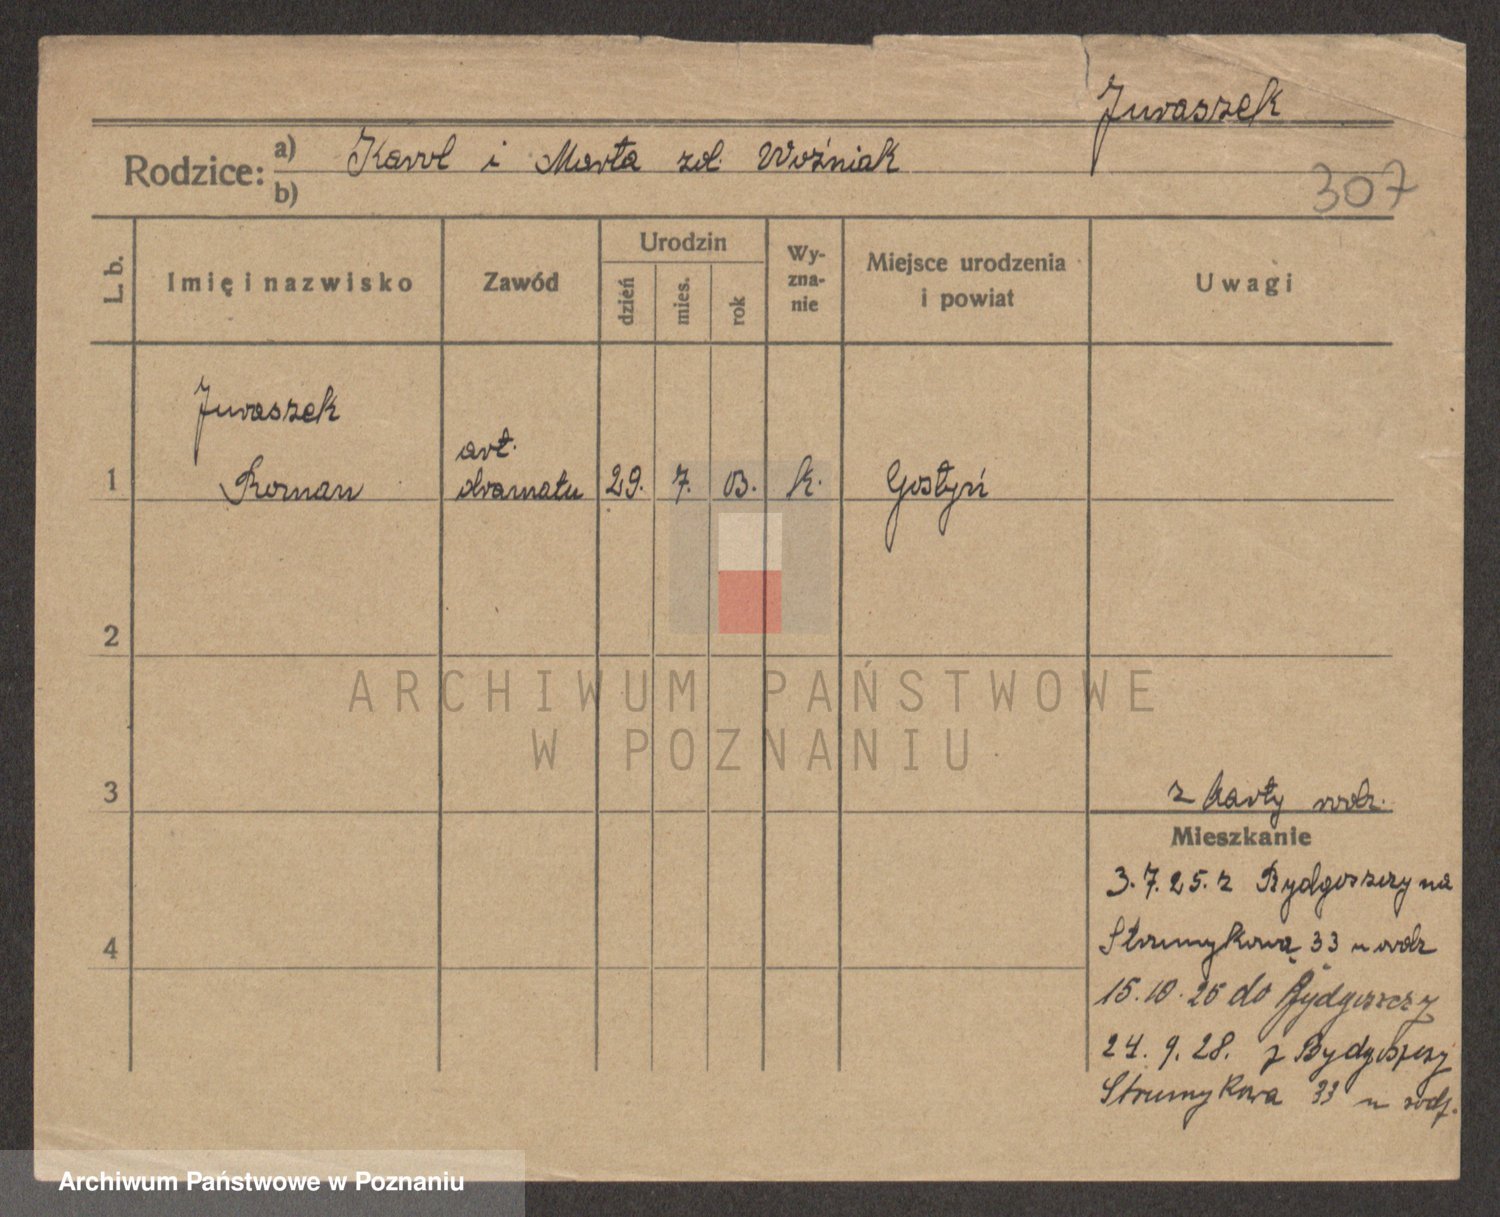 Juraszek
Rodzice: a) Karol i Marta zd. Woźniak
b)
307
L. b.
Imię i nazwisko
Zawód
Urodzin
dzień
mies.
rok
Wy-
zna-
nie
Miejsce urodzenia
i powiat
Uwagi
Juraszek
art.
1 Roman dramatu 29. 7. 03. k. Gostyń
2
ARCHIWUM PAŃSTWOWE
W POZNANIU
3 z karty rodz.
Mieszkanie
3.7.25. z Bydgoszczy na
Strumykową 33 u rodz
4
15.10.25 do Bydgoszczy
24.9.28. z Bydgoszczy
Strumykowa 33 u rodz.
Archiwum Państwowe w Poznaniu